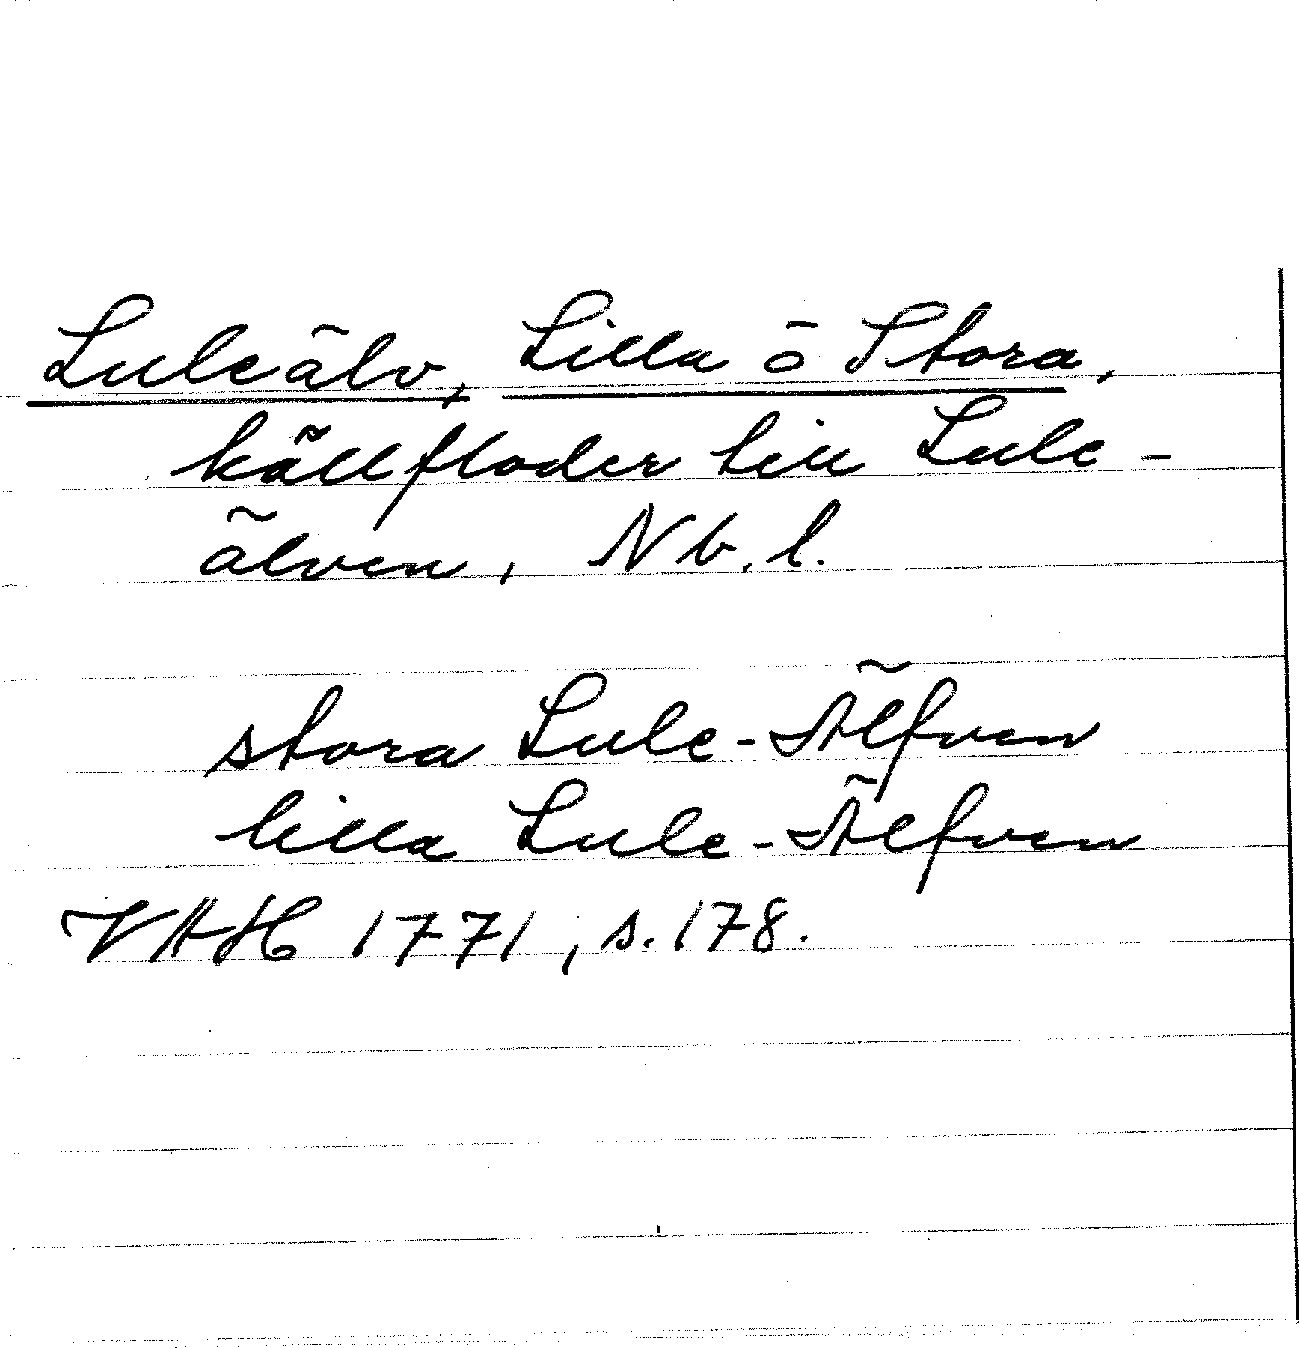 Luleälv, Lilla o Stora,
källfloder till Lule-
älven, Nb. l.
stora Lule-Älfven
lilla Lule-Älfven
VAH 1771, s. 178.